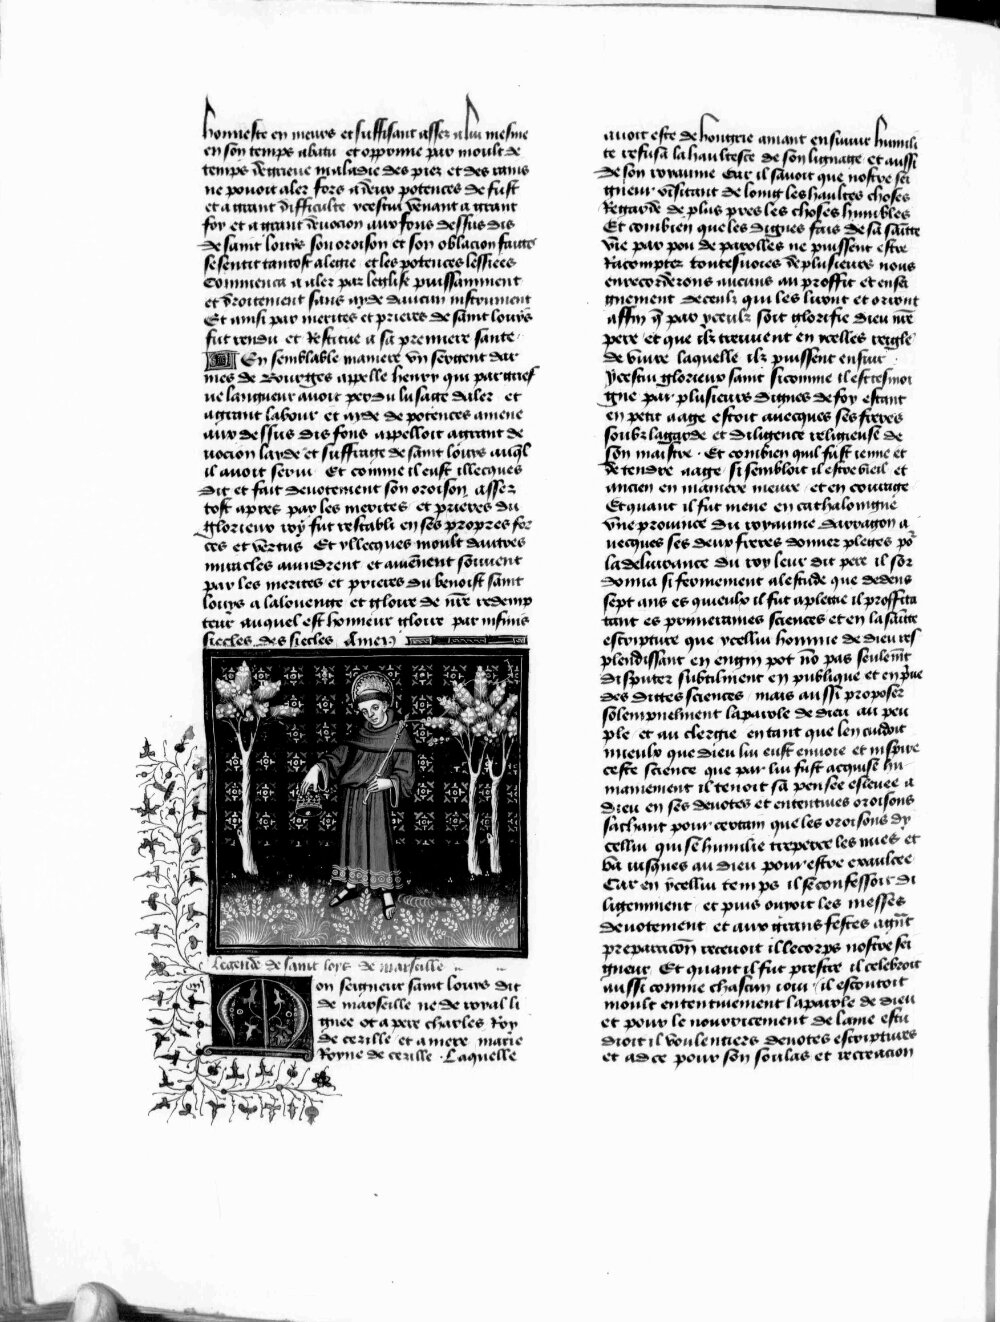 honneste en meurs et suffisant assez a lui mesme
en son temps abatu et opprime par moult de
temps de grieve maladie des piez et des rains
ne povoit aler fors a deux potences de fust
et a grant difficulte ycestui venant a grant
foy et a grant devocion aux fons dessus dis
de saint louys son oroison et son oblacion faittes
se sentit tantost alegie et les potences lessiees
Commenca a aler par leglise puissamment
et droitement sans ayde daucun instrument
Et ainsi par merites et prieres de saint louys
fut rendu et Restitue a sa premiere sante
En semblable maniere un sergent dar
mes de Bourges appelle henry qui par grief
ve langueur avoit perdu lusage daler et
a grant labour et ayde de potences amene
aux dessus dis fons appelloit a grant de
vocion layde et suffrage de saint louys auql
il avoit servi Et comme il eust illecques
dit et fait devotement son oroison assez
tost apres par les merites et prieres du
glorieux roy fut restabli en ses propres for
ces et vertus Et yllecques moult dautres
miracles avindrent et aviennent souvent
par les merites et prieres du benoist saint
louys a la louenge et gloire de nre redemp
teur auquel est honneur gloire par infinis
siecles des siecles Amen
Legende de saint loys de marseille
Mon seigneur saint louys dit
de marseille ne de royal li
gnee ot a pere charles Roy
de cezille et a mere marie
Royne de cezille Laquelle
avoit este de hongrie amant ensuivir humili
te refusa la haultesce de son lignage et aussi
de son royaume Car il savoit que nostre sei
gneur visitant de loing les haultes choses
Regarde de plus pres les choses humbles
Et combien que les dignes fais de sa sainte
vie par pou de parolles ne puissent estre
Racomptez toutesvoies de plusieurs nous
enrecorderons aucuns au proffit et ensei
gnement deceulz qui les liront et orront
affin q par yceulz soit glorifie dieu nre
pere et que ilz treuvent en ycelles reigle
de vivre laquelle ilz puissent ensuir
ycestui glorieux saint si comme il est tesmoi
gne par plusieurs dignes de foy estant
en petit aage estoit avecques ses freres
soubz la garde et diligence religieuse de
son maistre Et combien quil fust ienne et
de tendre aage si sembloit il estre vieil et
ancien en maniere meure et en courage
Et quant il fut mene en cathaloingne
une province du royaume darragon a
vecques ses deux freres donner pleges por
la delivrance du roy leur dit pere il sor
donna si fermement a lestude que dedens
sept ans es quieulx il fut a plegie il proffita
tant es primeraines sciences et en la sainte
escripture que ycellui homme de dieu res
plendissant en engin pot non pas seulemt
disputer subtilment en publique et en prive
des dittes sciences mais aussi proposer
solempnelment la parole de dieu au peu
ple et au clergie en tant que len cuidoit
mieulx que dieu lui eust envoie et inspire
ceste science que par lui fust acquise hu
mainement il tenoit sa pensee eslevee a
dieu en ses devotes et ententives oroisons
sachant pour certain que les oroisons dy
cellui qui se humilie trepercе les nues et
va iusques au dieu pour estre exaulcee
Car en ycellui temps il se confessoit di
ligemment et puis ouyoit les messes
devotement et aux grans festes agnt
preparacion recevoit il le corps nostre sei
gneur Et quant il fut prestre il celebroit
aussi comme chascun iour il escoutoit
moult ententivement la parole de dieu
et pour le nourricement de lame estu
dioit il voulentiers devotes escriptures
et ad ce pour son soulas et recreacion